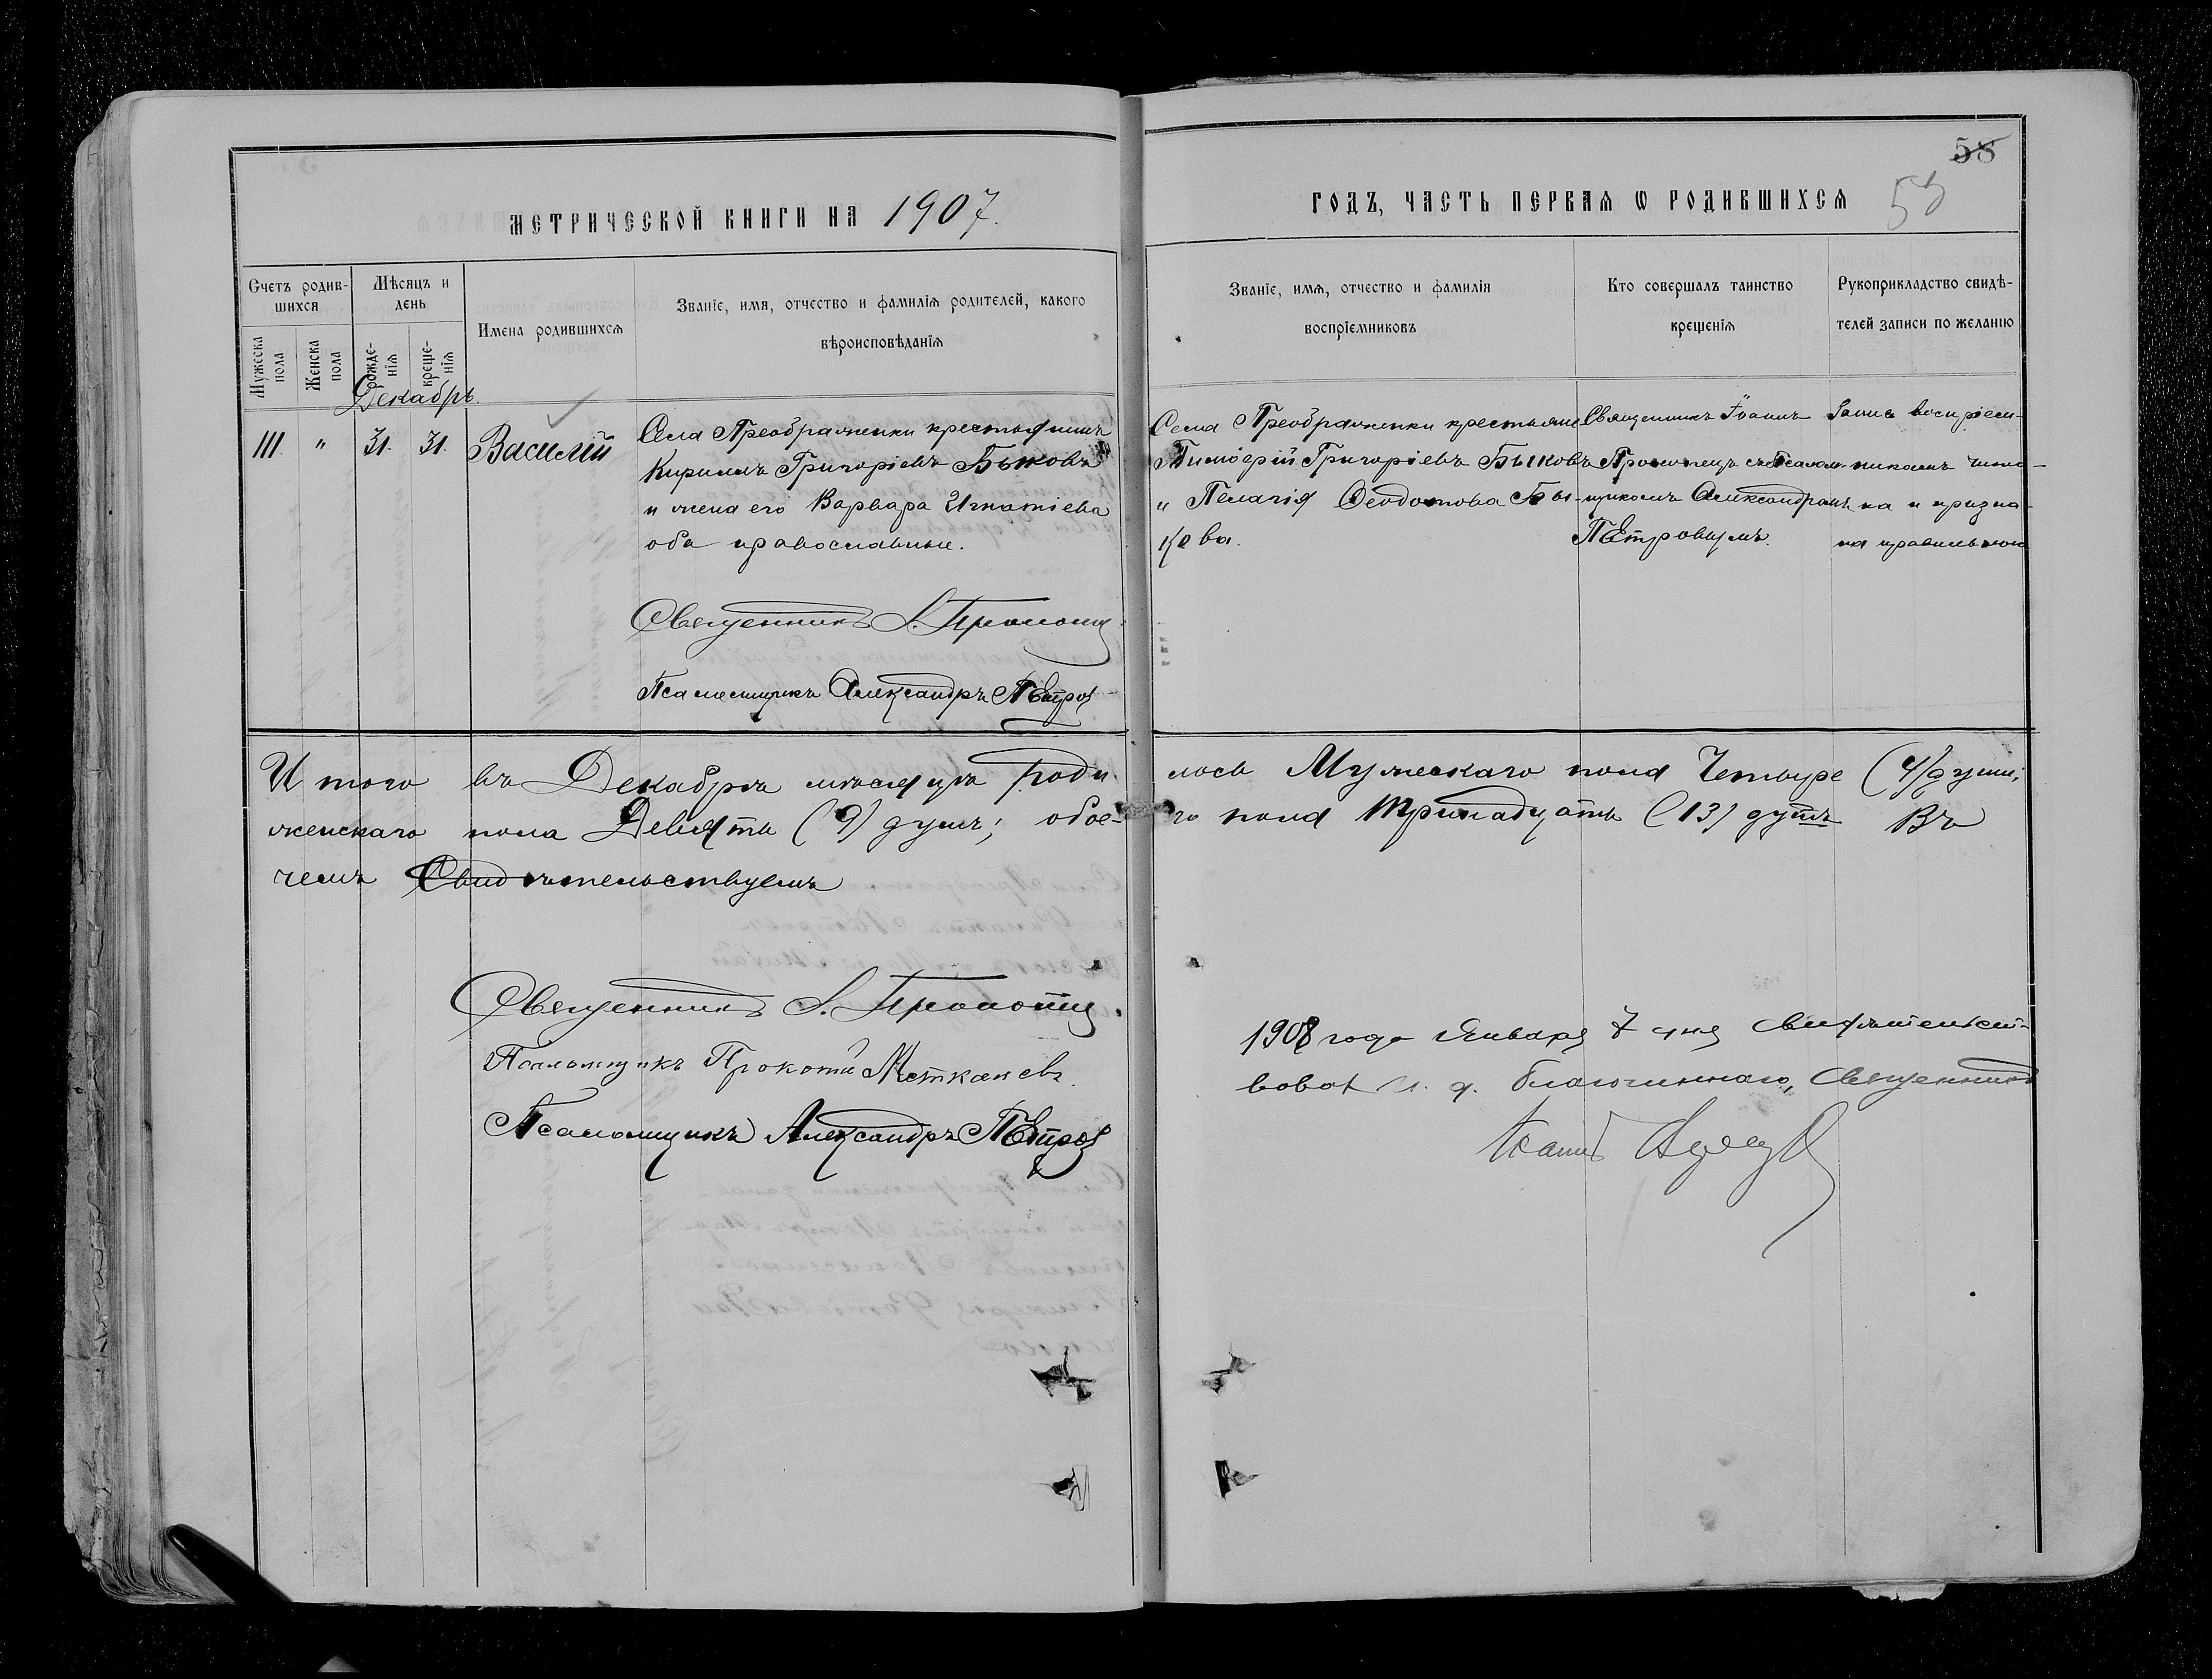 58
58
МЕТРИЧЕСКОЙ КНИГИ НА 1907.
ГОДЪ, ЧАСТЬ ПЕРВАЯ Ѡ РОДИВШИХСЯ
Счетъ родив-
шихся
Мѣсяцъ и
день
Имена родившихся
Званіе, имя, отчество и фамилія родителей, какого
вѣроисповѣданія
Мужеска
пола
Женска
пола
рожде-
нія
креще-
нія
Званіе, имя, отчество и фамилія
воспріемниковъ
Кто совершалъ таинство
крещенія
Рукоприкладство свидѣ-
телей записи по желанію
Декабрь.
111. " 31. 31. Василій
Села Преображенки крестьянинъ
Кириллъ Григоріевъ Быковъ
и жена его Варвара Игнатіева
оба православные.
Священникъ І. Прокопец
Псаломщикъ Александръ Петров
Села Преображенки крестьяне
Тимоѳей Григоріевъ Быковъ
и Пелагія Ѳеодотова Бы-
кова.
Священникъ Іоаннъ
Прокопецъ съ Псалом-
щикомъ Александромъ
Петровымъ.
Запись воспріем-
никомъ чита-
на и призна-
на правильною
Итого въ Декабрѣ мѣсяцѣ роди-
лось Мужескаго пола Четыре (4) души;
женскаго пола Девять (9) душъ; обое-
го пола Тринадцать (13) душъ Въ
чемъ Свидѣтельствуемъ
Священникъ І. Прокопец
Псаломщикъ Прокопій
Псаломщикъ Александръ Петров
1908 года Января 7 дня Свидѣтельст-
вовал И. д. благочиннаго, Священникъ
Іоаннъ